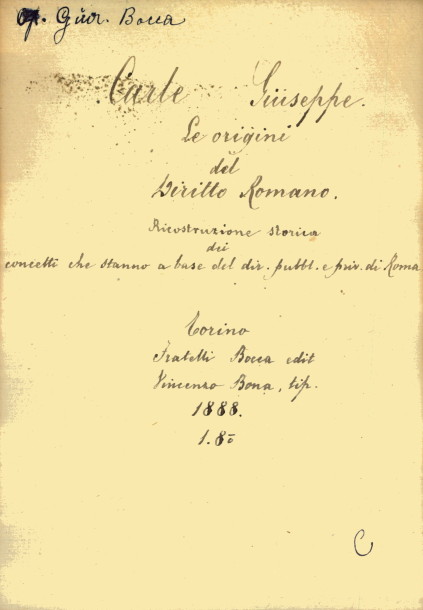 Op. Giur. Bocca
Carle Giuseppe.
Le origini
del
Diritto Romano.
Ricostruzione storica
dei
concetti che stanno a base del dir. pubbl. e priv. di Roma
Torino
Fratelli Bocca edit
Vincenzo Bona, tip.
1888.
1. 8º
C